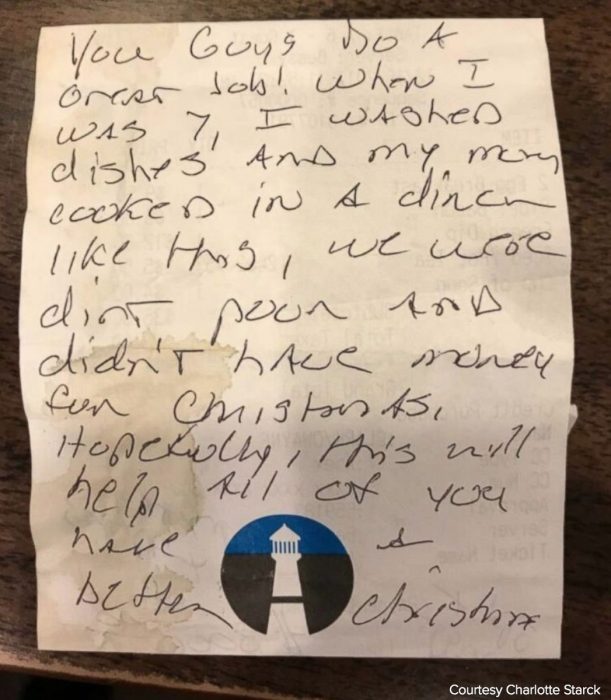 You Guys Do A
Great Job! When I
was 7, I washed
dishes And my mom
cooked in A diner
like this, we were
dirt poor And
didn't have money
for Christmas.
Hopefully, this will
help All of you
have a
better Christmas
Courtesy Charlotte Starck